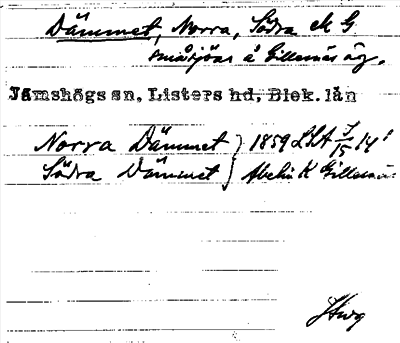 Dämmet, Norra, Södra ek G.
småsjöar å Gillesnäs äg.
Jämshögs sn, Listers hd, Blek. län
Norra Dämmet } 1859 LSA J/15 14¹
Södra Dämmet } Abelin K Gillesnäs